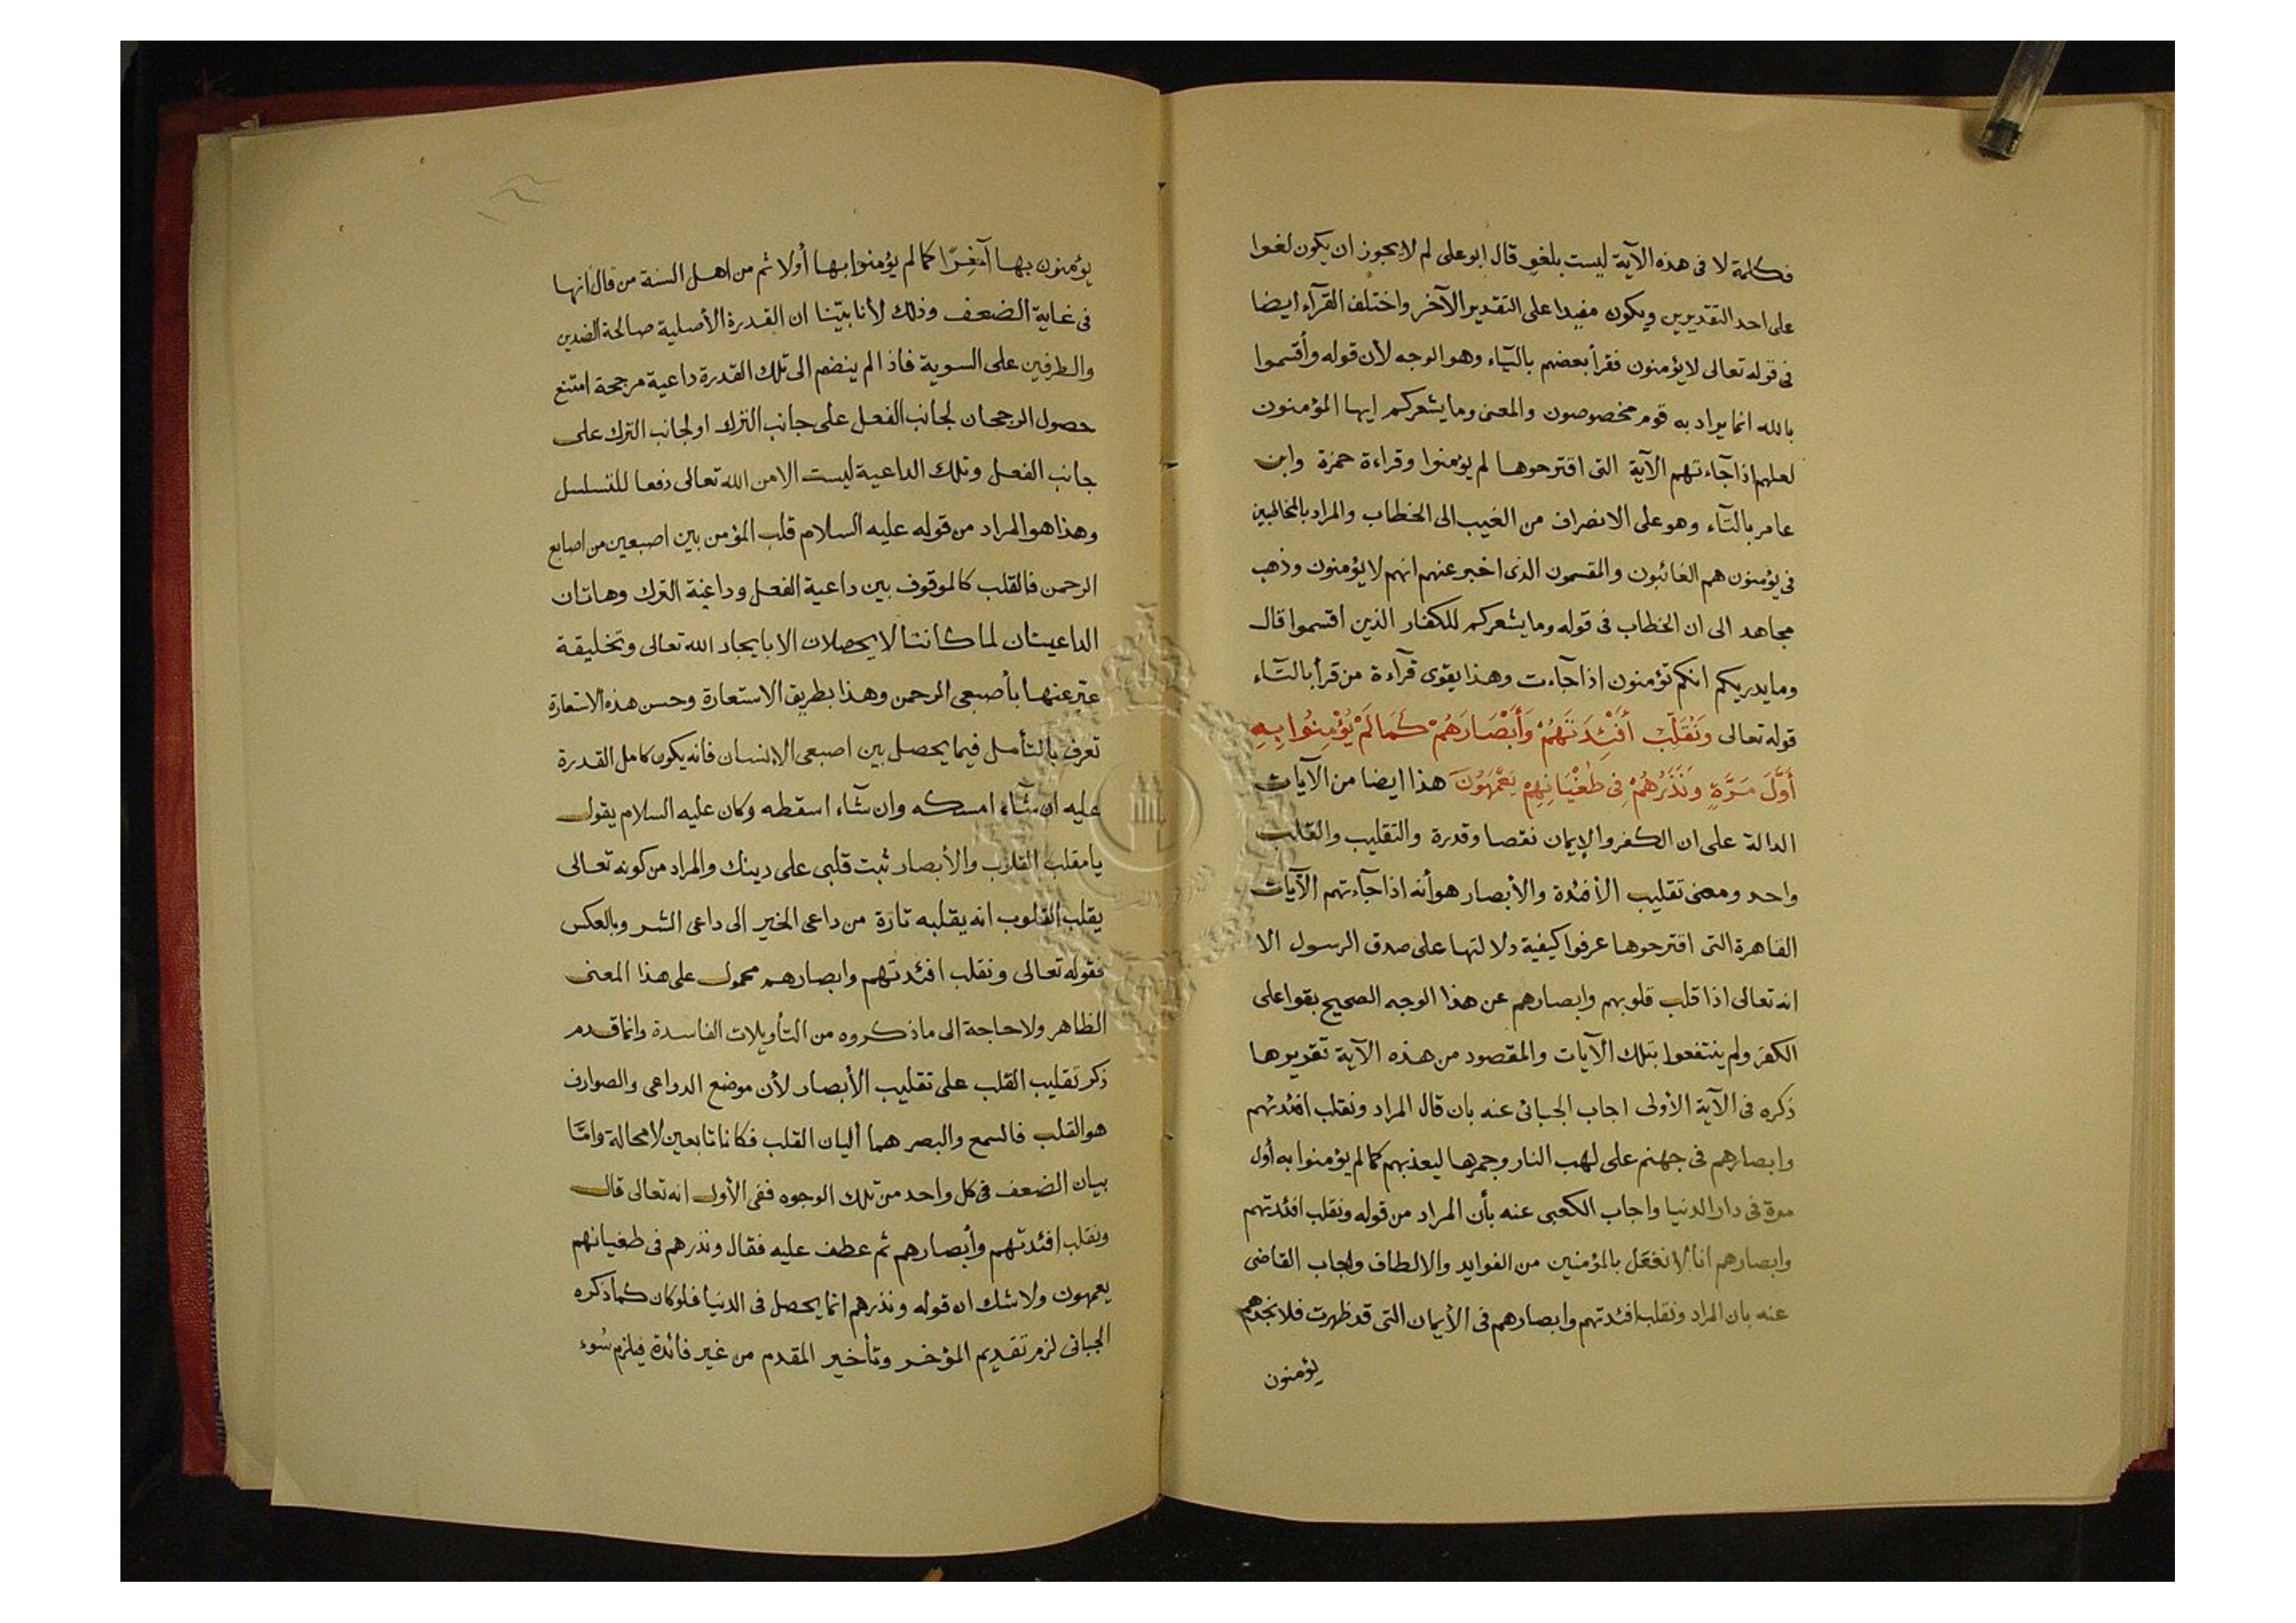 فكلمة لا فى هذه الآية ليست بلغو قال ابو على لم لا يجوز ان يكون لغوا
على احد التقديرين ويكون مفيدا على التقدير الآخر واختلف القرآء ايضا
فى قوله تعالى لا يؤمنون فقرأ بعضهم باليآء وهو الوجه لأن قوله وأقسموا
بالله انما يراد به قوم مخصوصون والمعنى وما يشعركم ايها المؤمنون
لعلهم اذا جآءتهم الآية التى اقترحوها لم يؤمنوا وقراءة حمزة وابن
عامر بالتآء وهو على الانصراف من الغيب الى الخطاب والمراد بالمخاطبين
فى يؤمنون هم الغائبون والمقسمون الذى اخبر عنهم انهم لا يؤمنون وذهب
مجاهد الى ان الخطاب فى قوله وما يشعركم للكفار الذين اقسموا قال
وما يدريكم انكم تؤمنون اذا جآءت وهذا يقوى قرآءة من قرأ بالتآء
قوله تعالى وَنُقَلِّبُ أَفْئِدَتَهُمْ وَأَبْصَارَهُمْ كَمَا لَمْ يُؤْمِنُوا بِهِ
أَوَّلَ مَرَّةٍ وَنَذَرُهُمْ فِى طُغْيَانِهِمْ يَعْمَهُونَ هذا ايضا من الآيات
الدالة على ان الكفر والإيمان نقصا وقدرة والتقليب والقلب
واحد ومعنى تقليب الأفئدة والأبصار هو أنه اذا جآءتهم الآيات
القاهرة التى اقترحوها عرفوا كيفية دلالتها على صدق الرسول الا
انه تعالى اذا قلب قلوبهم وابصارهم عن هذا الوجه الصحيح بقوا على
الكفر ولم ينتفعوا بتلك الآيات والمقصود من هذه الآية تقريرها
ذكره فى الآية الأولى اجاب الجبائى عنه بان قال المراد ونقلب افئدتهم
وابصارهم فى جهنم على لهب النار وجمرها ليعذبهم كما لم يؤمنوا به أول
مرة فى دار الدنيا واجاب الكعبى عنه بأن المراد من قوله ونقلب افئدتهم
وابصارهم انا لا نفعل بالمؤمنين من الفوايد والالطاف واجاب القاضى
عنه بان المراد ونقلب افئدتهم وابصارهم فى الأيمان التى قد ظهرت فلا نجدهم
يؤمنون
يؤمنون بها آخرا كما لم يؤمنوا بها أولا ثم من اهل السنة من قال انها
فى غاية الضعف وذلك لأنا بيّنا ان القدرة الأصلية صالحة الضدين
والطرفين على السوية فاذا لم ينضم الى تلك القدرة داعية مرجحة امتنع
حصول الرجحان لجانب الفعل على جانب الترك او لجانب الترك على
جانب الفعل وتلك الداعية ليست الا من الله تعالى دفعا للتسلسل
وهذا هو المراد من قوله عليه السلام قلب المؤمن بين اصبعين من اصابع
الرحمن فالقلب كالموقوف بين داعية الفعل وداعية الترك وهاتان
الداعيتان لما كانتا لا يحصلان الا بايجاد الله تعالى وتخليقة
عبّر عنها بأصبعى الرحمن وهذا بطريق الاستعارة وحسن هذه الاستعارة
تعرف بالتأمل فيما يحصل بين اصبعى الإنسان فانه يكون كامل القدرة
عليه ان شآء امسكه وان شآء اسقطه وكان عليه السلام يقول
يا مقلب القلوب والأبصار ثبت قلبى على دينك والمراد من كونه تعالى
يقلب القلوب انه يقلبه تارة من داعى الخير الى داعى الشر وبالعكس
فقوله تعالى ونقلب افئدتهم وابصارهم محمول على هذا المعنى
الظاهر ولا حاجة الى ما ذكروه من التأويلات الفاسدة وانما قدم
ذكر تقليب القلب على تقليب الأبصار لأن موضع الدواعى والصوارف
هو القلب فالسمع والبصر هما أليان القلب فكانا تابعين لا محالة وامّا
بيان الضعف فى كل واحد من تلك الوجوه ففى الأول انه تعالى قال
ونقلب افئدتهم وأبصارهم ثم عطف عليه فقال ونذرهم فى طغيانهم
يعمهون ولا شك ان قوله ونذرهم انما يحصل فى الدنيا فلو كان كما ذكره
الجبائى لزم تقديم المؤخر وتأخير المقدم من غير فائدة فيلزم سُوء